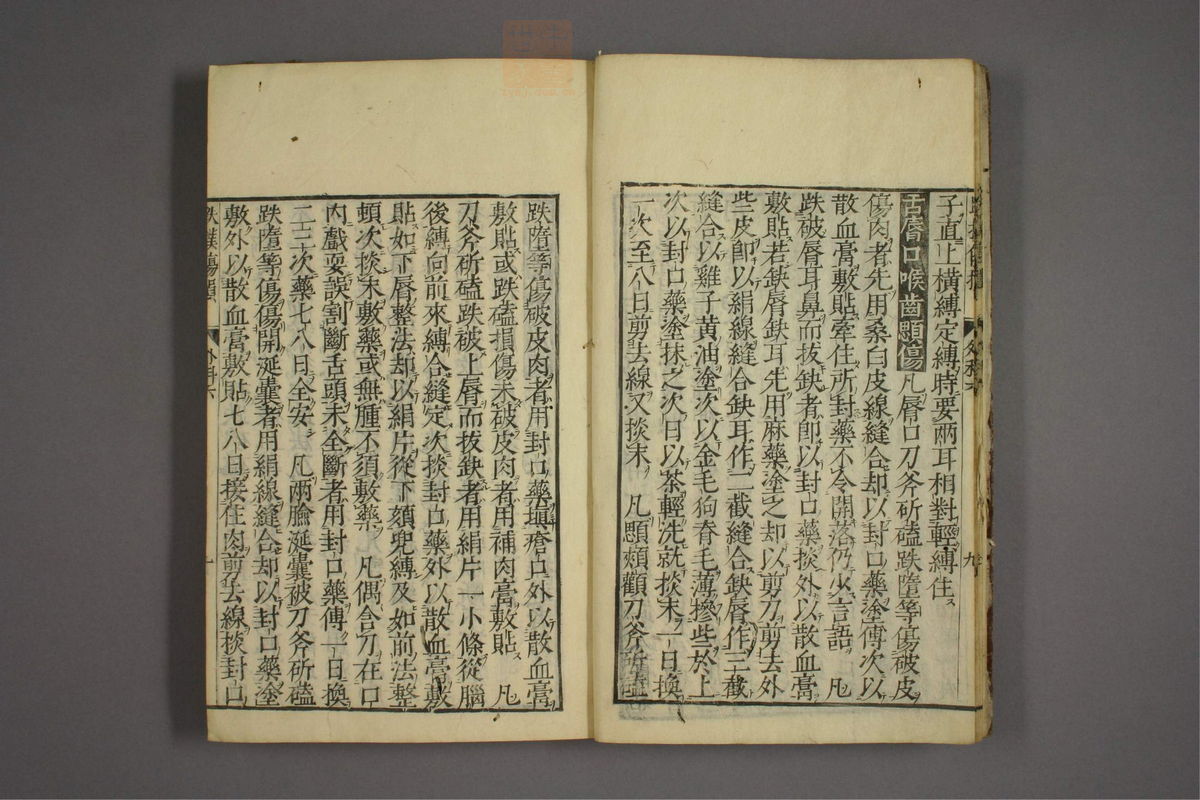 子直止橫縛定縛時要兩耳相對輕縛住
舌脣口喉齒顋傷 凡脣口刀斧斫磕跌墮等傷破皮
傷肉者先用桑白皮線縫合却以封口藥塗傅次以
散血膏敷貼牽住所封藥不令開落仍少言語 凡
跌破脣耳鼻而拔缺者卽以封口藥掞外以散血膏
敷貼若缺脣缺耳先用麻藥塗之却以剪刀剪去外
些皮卽以絹線縫合缺耳作二截縫合缺脣作三截
縫合以雞子黃油塗次以金毛狗脊毛薄摻些於上
次以封口藥塗抹之次日以茶輕洗就掞末一日換
一次至八日剪去線又掞末 凡顋頰顴刀斧所磕
跌墮等傷破皮肉者用封口藥塡瘡口外以散血膏
敷貼或跌磕損傷未破皮肉者用補肉膏敷貼 凡
刀斧斫磕跌被上脣而拔缺者用絹片一小條從腦
後縛向前來縛合縫定次掞封口藥外以散血膏敷
貼如下脣整法却以絹片從下頦兜縛及如前法整
頓次掞末敷藥或無腫不須敷藥 凡偶含刀在口
內戲耍誤割斷舌頭未全斷者用封口藥傅一日換
二三次藥七八日全安 凡兩臉涎囊被刀斧斫磕
跌墮等傷傷開涎囊者用絹線縫合却以封口藥塗
敷外以散血膏敷貼七八日接住肉剪去線掞封口
跌撲傷類 外科六